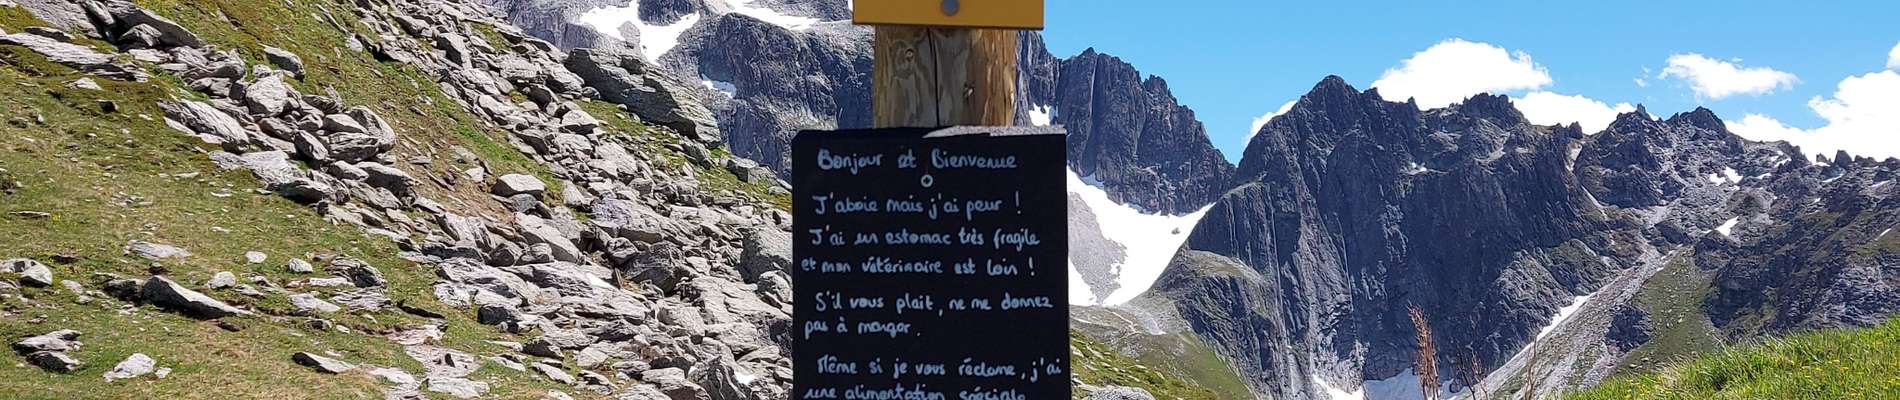 Bonjour et Bienvenue
J'aboie mais j'ai peur !
J'ai un estomac très fragile
et mon vétérinaire est loin !
S'il vous plait, ne me donnez
pas à manger.
Même si je vous réclame, j'ai
une alimentation spéciale